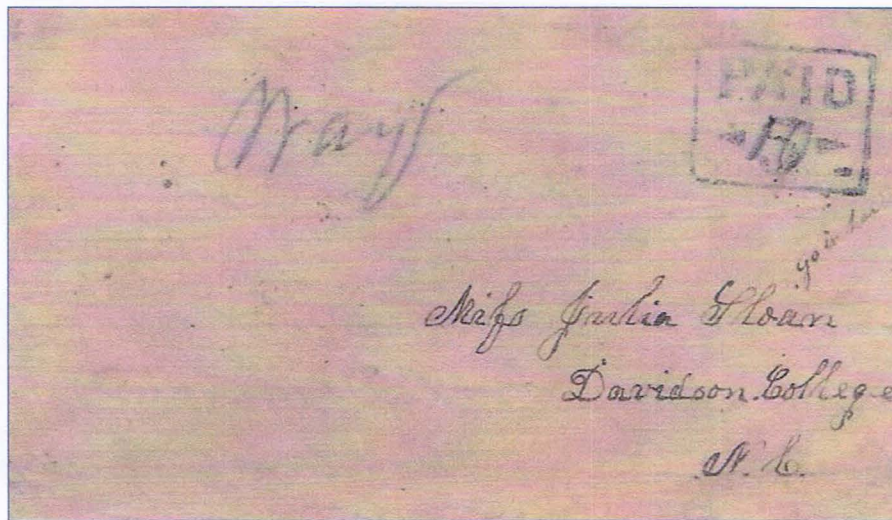 Way
PAID
10
Miſs Julia Sloan
Davidson College
N.C.